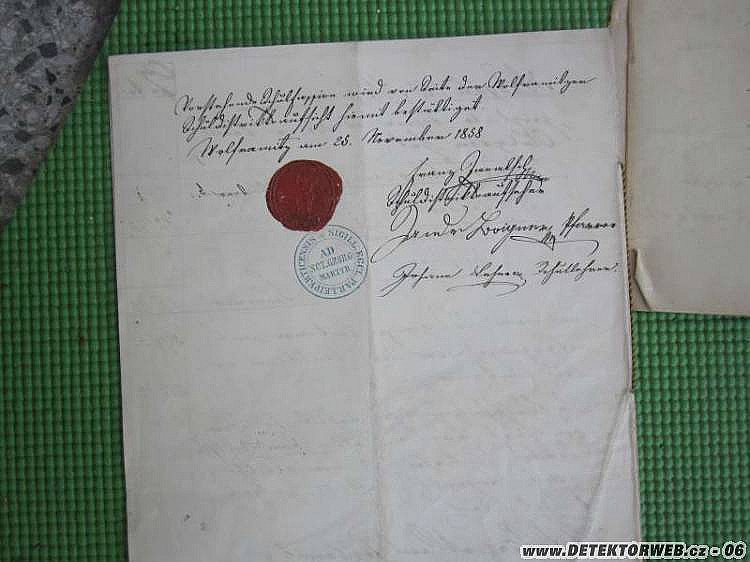 Vorstehende Schulfassion wird von Seite der Wolframitzer
Schuldistriktsaufsicht hiemit bestättiget
Wolframitz am 25. November 1858
Franz
Schuldistriktsaufseher
Pfarrer
Johann Schullehrer.
SIGILL. ECCL. PAR. LEIPERTICENSIS
AD
SCT. GEORG.
MARTYR
www.DETEKTORWEB.cz - 06